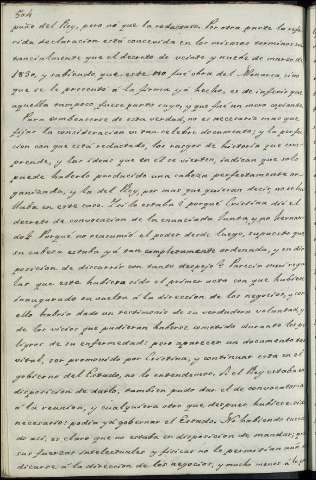 504
puño del Rey, pero no que la redactase. Por otra parte la refe-
rida declaracion está concevida en los mismos terminos sus-
tancialmente que el decreto de veinte y nueve de marzo de
1830, y sabiendo que este no fué obra del Monarca sino
que se le presentó á la firma ya hecho, es de inferir que
aquella tampoco fuese parto suyo, y que fué un mero copiante.
Para combencerse de esta verdad, no es necesario mas que
fijar la consideracion en tan celebre documento; y la perfec-
cion con que está redactado, los rasgos de historia que com-
prende, y las ideas que en él se vierten, indican que solo
puede haberlo producido una cabeza perfectamente or-
ganizada, y la del Rey, por mas que quieran decir, no se ha-
llaba en este caso. I si lo estaba ? porqué Cristina dió el
decreto de convocacion de la enunciada Junta y no Fernan-
do? Porqué no reasumió el poder desde luego, supuesto que
su cabeza estaba yá tan completamente ordenada, y en dis-
posicion de discurrir con tanto despejo? Parecia muy regu-
lar que este hubiera sido el primer acto con que hubiera
inaugurado su vuelta á la direccion de los negocios, y con
ello habria dado un testimonio de su verdadera voluntad y
de los vicios que pudieran haberse cometido durante los pe-
ligros de su enfermedad: pero aparecer un documento tan
vital, ser promovido por Cristina, y continuar esta en el
gobierno del Estado, no lo entendemos. Si el Rey estaba en
disposicion de darlo, tambien pudo dar el de convocatoria
á la reunion, y cualquiera otro que despues hubiese sido
necesario: podia yá gobernar el Estado. No habiendo suce-
do asi, es claro que no estaba en disposicion de mandar, que
sus fuerzas intelectuales y fisicas no le permitian aun de-
dicarse á la direccion de los negocios, y mucho menos á